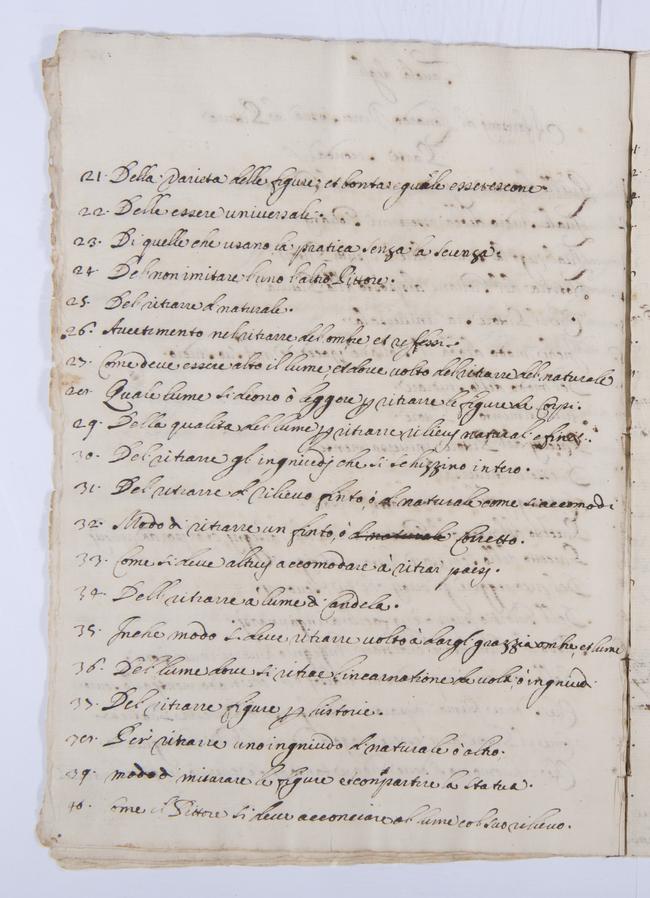 21. Della varieta delle figure, et bontà e quale essercene.
22. Delle essere universale.
23. Di quelle che usano la pratica senza la scienza.
24. Del non imitare l'uno l'altro Pittore.
25. Del ritrarre il naturale.
26. Avertimento nel ritrarre del ombre et reflessi.
27. Come deve essere alto il lume et dove volto del ritrarre del naturale
28. Quale lume si deono ò leggere p ritrarre le figure de Corpi.
29. Della qualita del lume p ritrarre rilievi naturali e finti.
30. Del ritrarre gl ingniudi che si schizzino intero.
31. Del ritrarre il rilievo finto ó il naturale come si accomodi
32. Modo di ritrarre un finto, ò Coretto.
33. Come si deve altrui accomodare à ritrar paesi.
34. Dell ritrarre à lume di Candela.
35. In che modo si deve ritrarre volto à dargl grazzia ombre, et lume
36. Del lume dove si ritrae l'incarnatione de volti ò ingniudi
37. Del ritrarre figure p historie.
38. Per ritrarre uno ingniudo il naturale ò altro.
39. modo di misurare le figure et conpartire la statua.
40. ome il Pittore si deve acconciare al lume col suo rilievo.